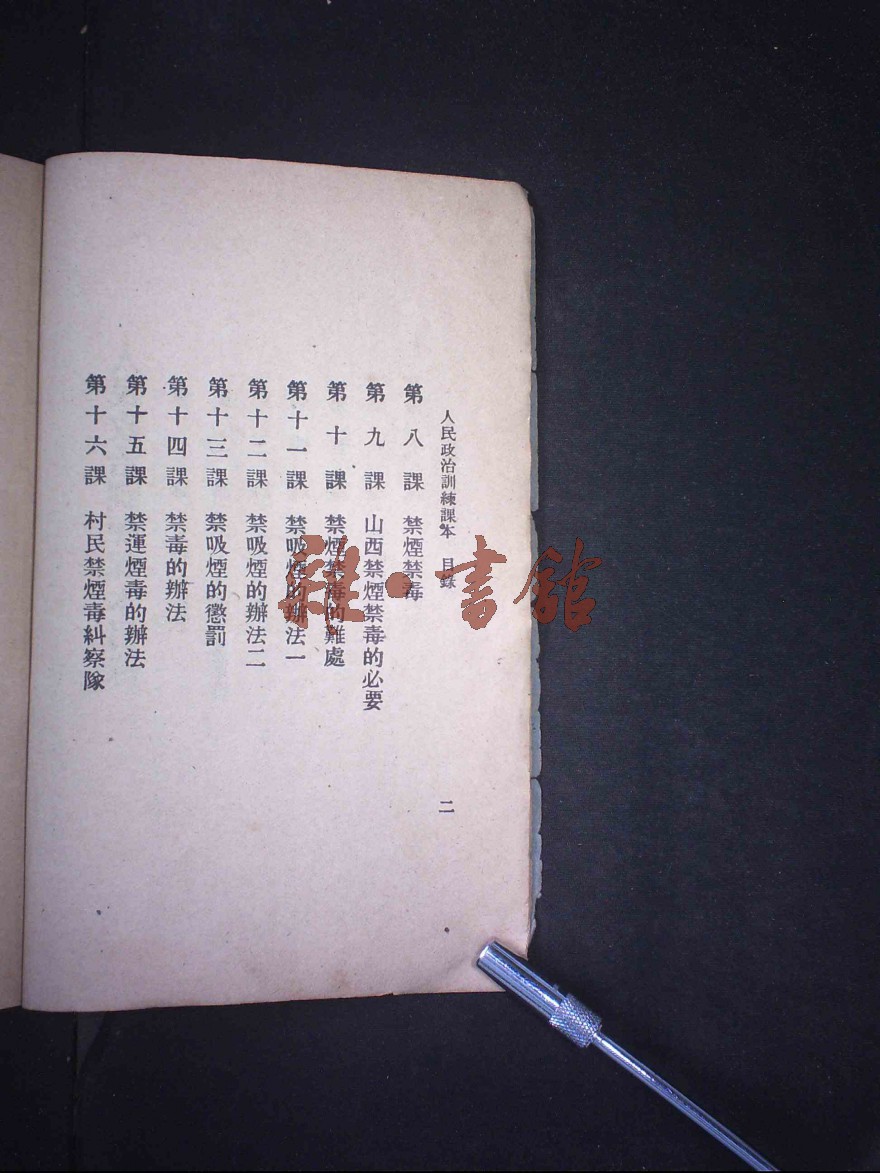 人民政治訓練課本 目錄 二
第八課 禁煙禁毒
第九課 山西禁煙禁毒的必要
第十課 禁煙禁毒的難處
第十一課 禁吸煙的辦法一
第十二課 禁吸煙的辦法二
第十三課 禁吸煙的懲罰
第十四課 禁毒的辦法
第十五課 禁運煙毒的辦法
第十六課 村民禁煙毒糾察隊
雜·書館